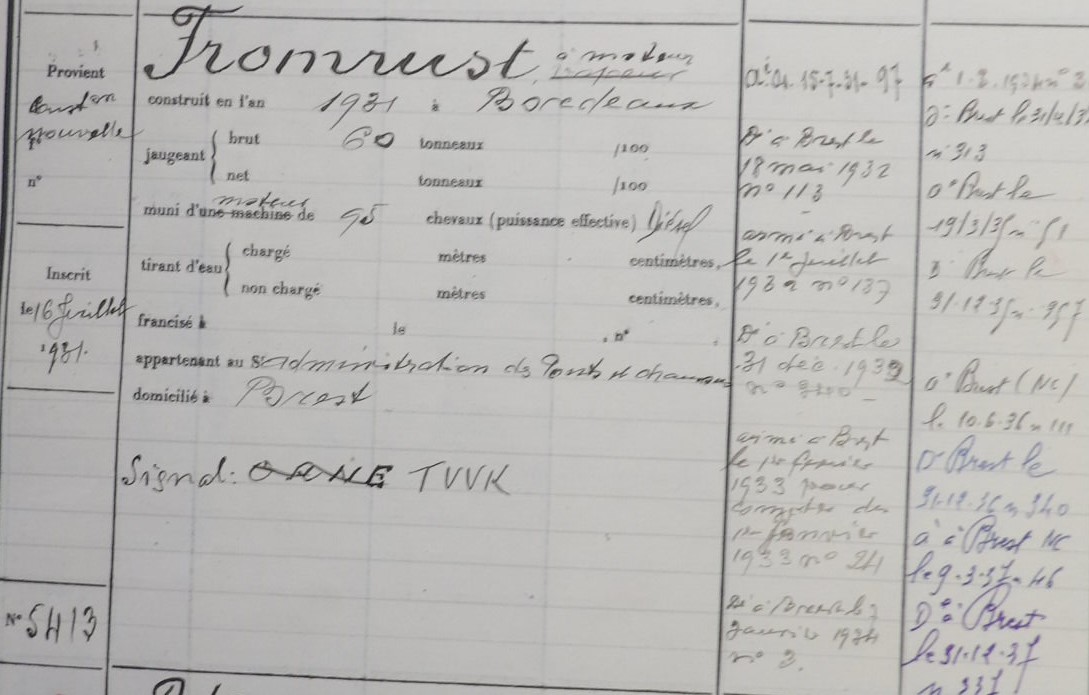 Provient
Const on
nouvelle
n°
Inscrit
le 16 Juillet
1931.
N° 5413
Fromrust à moteur
vapeur
construit en l'an 1931 à Boredeaux
jaugeant { brut 60 tonneaux /100
net tonneaux /100
moteur
muni d'une machine de 95 chevaux (puissance effective) Diésel
tirant d'eau { chargé mètres centimètres,
non chargé mètres centimètres,
francisé à le , n° ,
appartenant au Sr administration des Ponts et chaussées
domicilié à Brest
Signal: ORNE TVVK
15-7-31- 97
D° à Brest le
18 mai 1932
n° 113
armé à Brest
le 1er Juillet
1932 n° 137
D° à Brest le
31 déc. 1932
n°
armé à Brest
le 1er février
1933 pour
compter du
1er janvier
1933 n° 24
D° à Brest le 2
Janvier 1934
n° 3.
a° 1-2-1934 n° 2
D° Brest le 31/
n° 313
a° Brest le
19/3/35 n° 51
D° Brest le
31-12-35 n° 357
a° Brest (NC)
le 10.6.36 n 111
D° Brest le
31-12-36 n 340
a° à Brest NC
le 9-3-37 n 46
D° à Brest
le 31-12-37
n 337